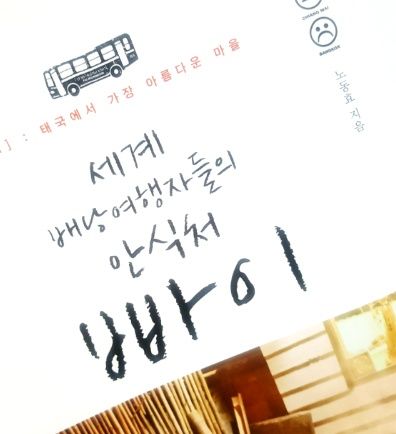 CHIANG MAI
BANGKOK
] : 태국에서 가장 아름다운 마을
노동효 지음
세계
배낭여행자들의
안식처
빠이